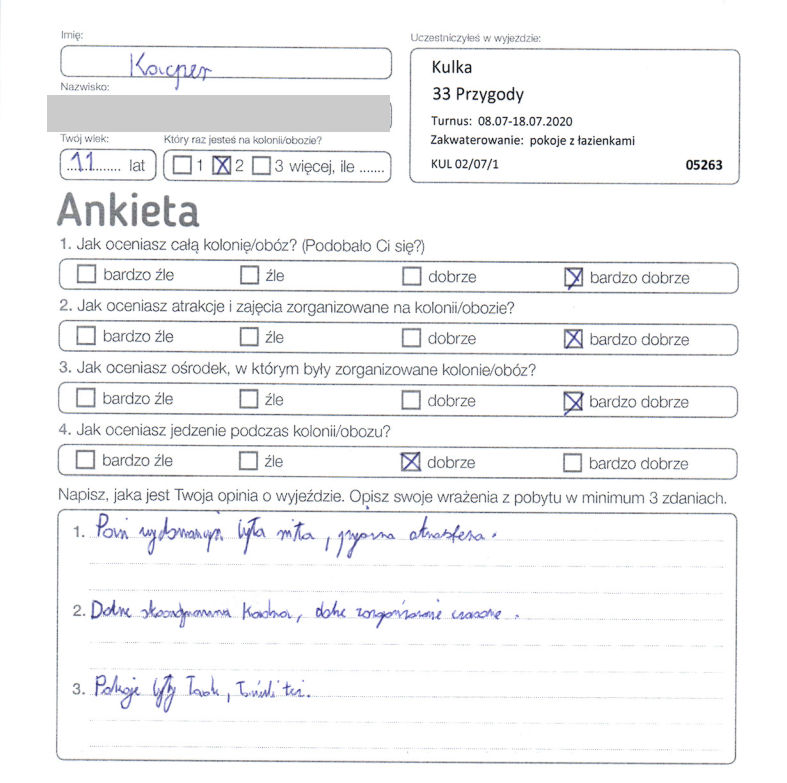 Imię:
Kacper
Uczestniczyłeś w wyjeździe:
Kulka
33 Przygody
Turnus: 08.07-18.07.2020
Zakwaterowanie: pokoje z łazienkami
KUL 02/07/1 05263
Nazwisko:
Twój wiek:
11 lat
Który raz jesteś na kolonii/obozie?
1 2 3 więcej, ile .......
Ankieta
1. Jak oceniasz całą kolonię/obóz? (Podobało Ci się?)
bardzo źle źle dobrze bardzo dobrze
2. Jak oceniasz atrakcje i zajęcia zorganizowane na kolonii/obozie?
bardzo źle źle dobrze bardzo dobrze
3. Jak oceniasz ośrodek, w którym były zorganizowane kolonie/obóz?
bardzo źle źle dobrze bardzo dobrze
4. Jak oceniasz jedzenie podczas kolonii/obozu?
bardzo źle źle dobrze bardzo dobrze
Napisz, jaka jest Twoja opinia o wyjeździe. Opisz swoje wrażenia z pobytu w minimum 3 zdaniach.
1. była miła, atmosfera.
2. kadra, czasowe.
3. Pokoje były